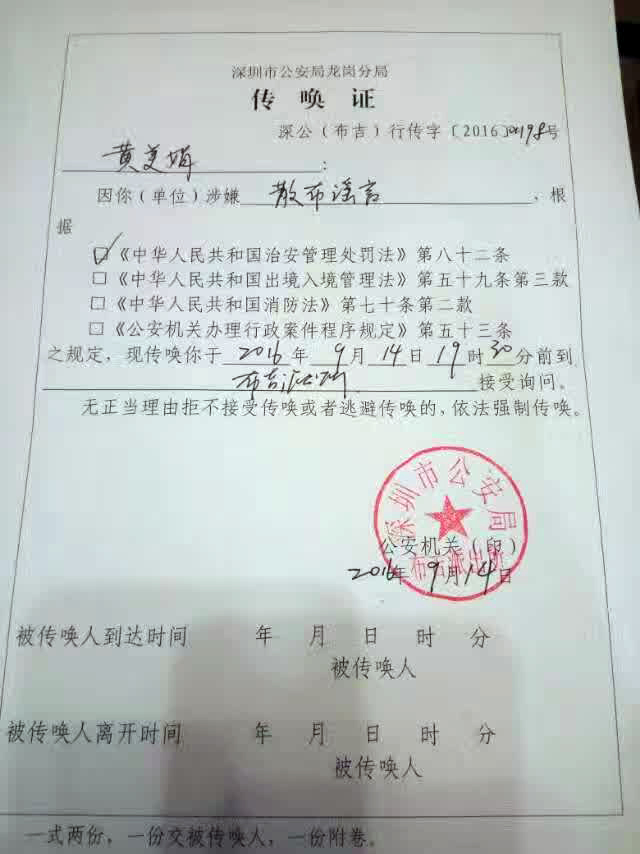 深圳市公安局龙岗分局
传唤证
深公（布吉）行传字〔2016〕00198号
黄美娟：
因你（单位）涉嫌 散布谣言 ，根
据
☑《中华人民共和国治安管理处罚法》第八十二条
□《中华人民共和国出境入境管理法》第五十九条第三款
□《中华人民共和国消防法》第七十条第二款
□《公安机关办理行政案件程序规定》第五十三条
之规定，现传唤你于 2016 年 9 月 14 日 19 时 30 分前到
布吉派出所 接受询问。
无正当理由拒不接受传唤或者逃避传唤的，依法强制传唤。
深圳市公安局
公安机关（印）
布吉派出所
2016年9月14日
被传唤人到达时间 年 月 日 时 分
被传唤人
被传唤人离开时间 年 月 日 时 分
被传唤人
一式两份，一份交被传唤人，一份附卷。